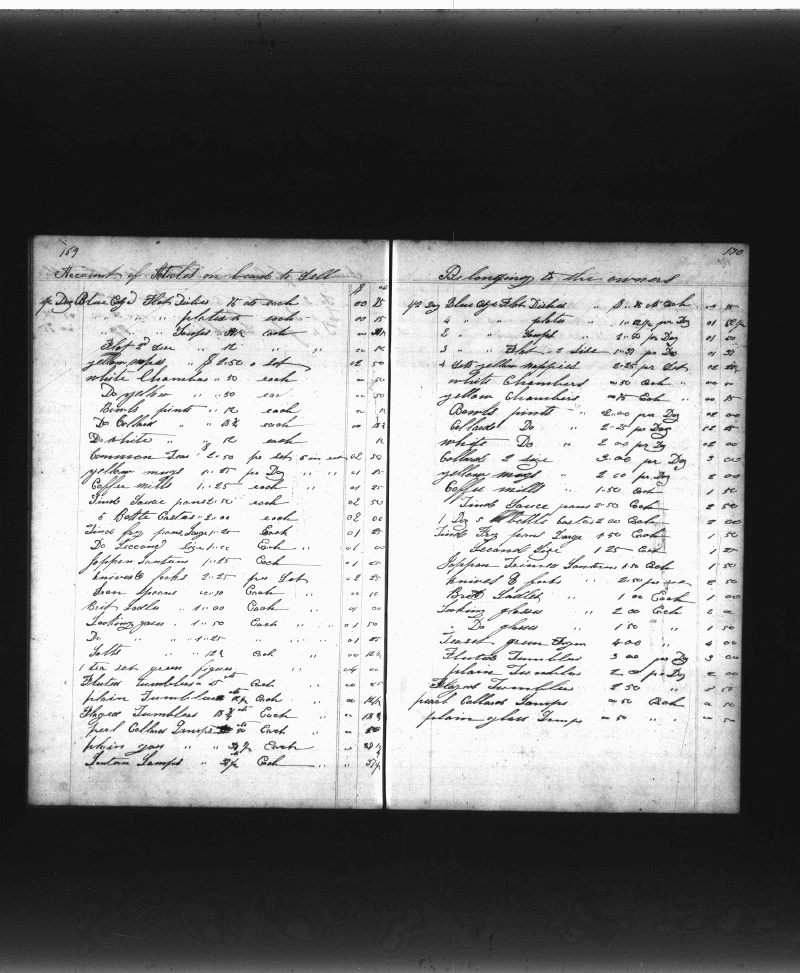 169
Account of Articles on board to Sell
$ cts
1/2 Doz Blue Edgd Flat Dishes 15 cts each 00 15
" " plates 15 each 00 15
" " " each
Flat 2d size " 12 " " 12
yellow " $ 2.50 a Set 02 50
white Chambers " 50 each 50
Do yellow " " 50 each 50
Bowls pints " 12 each 12
Do Collard " " 18 3/4 each 18 3/4
Do white " " 12 each 12
Common Teas " 2.50 per set 02 50
yellow mugs " 1.25 per Doz " " 01 25
Coffee mills 1.25 each " 01 25
Tind Sauce pans 2.50 each 02 50
5 Bottle Castors 2.00 each 02 00
Tind fry pans Large 1.25 Each 01 25
Do Second Size 1.00 Each " 01 00
Jappen Lantern 1.25 Each 01 25
knives & forks 2.25 per Set 02 25
Iron Spoons 00.10 Each 00 10
Brit Ladles " 1.00 Each 01 00
Looking glass " 1.50 Each " " 01 50
Do " " 1.25 " " " 01 25
Salts " 12 1/2 Each " 00 12 1/2
1 tea set green figure " 04 00
Fluted Tumblers 25 cts Each 00 25
plain Tumblers 12 1/2 Each " 00 12 1/2
Flaged Tumblers 18 3/4 Each " 18 3/4
perl Collard Lamps 50 Each " 50
plain " " Each "
Lantern Lamps " 37 1/2 Each " " 37 1/2
170
Belonging to the owners
1/2 Doz Blue Edge Flat Dishes " $ .. 15 cts Each 15
4 " " plates " 1.12 1/2 per Doz 01 12 1/2
2 " " " 1.50 per Doz 01 50
3 " " Flat 2 Size " 1.37 per Do 01 37
4 Sets yellow nappies 2.25 per Set 02 25
white Chambers 50 Each "
yellow Chambers Each " 00
Bowls pints " 2.00 per Doz 02 00
Collard Do " 2.25 per Doz 02 25
white Do " 2.00 per Doz 02 00
Collard 2 size 3.00 per Doz 3 00
yellow mugs " 2.00 per Doz 2 00
Coffee mills " 1.50 Each 1 50
Tind Sauce pans 2.50 Each 2 50
1 Doz 5 bottle Castors 2.00 Each 2 00
Tind Fry pans Large 1.50 Each 1 50
Second Size 1.25 Each 1 25
Jappen Lanterns 1.50 Each 1 50
knives & forks " 2.50 per 2 50
Brit Ladles " 1.00 Each 1 00
Looking glasses " 2.00 Each 2 00
Do glasses " 1.50 " 1 50
Teaset green 4.00 " 4 00
Fluted Tumblers 3.00 per Doz 3 00
plain Tumbler 2.00 per Doz 2 00
Flaged Tumblers 2.50 " 2 50
pearl Collard Lamps 50 Each " 50
plain glass Lamps 50 " " 50